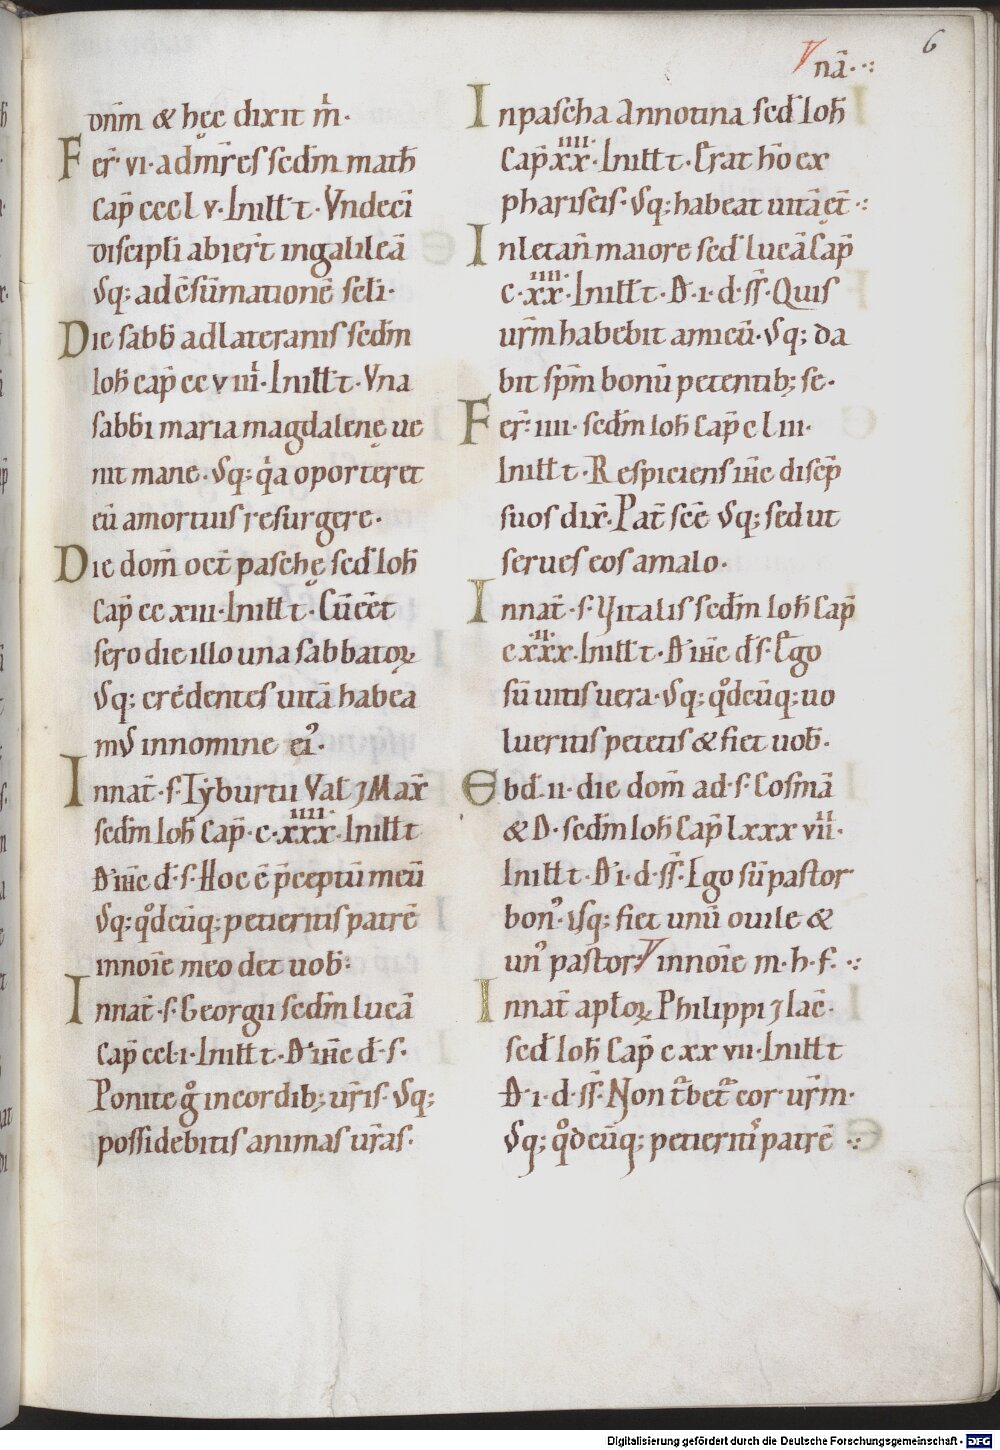 6
dn̄m & hęc dixit m̍.
Fer̄. vi. ad mr̄es sed̄m math̄
Cap̄ ccclv. Initt̄ t. Vndeci
discipli abier̄t in galileā
Vsq; ad c̄sūmationē sc̄li.
Die sabb̄ ad lateranis sed̄m
Ioh̄ cap̄ ccviiii. Initt̄ t. Vna
sabbi maria magdalenę ue
nit mane. Vsq; q̍a oporteret
eū a mortuis resurgere.
Die dom̄ oct̄ paschę sed̄ Ioh̄
Cap̄ ccxiii. Initt̄ t. Cū ēēt
sero die illo una sabbatoꝝ
Vsq; credentes uitā habea
mꝰ in nomine ei᾽.
In nat̄. s. Tyburtii Val̄ ⁊ Max̄
sed̄m Ioh̄ Cap̄. c.xxxiiii. Initt̄ t
D᾽ iħc d̄. s. Hoc ē p̄ceptū meū
Vsq; qᵒdcūq; petieritis patrē
in noīe meo det uob̄:
In nat̄. s. Georgii sed̄m lucā
Cap̄ ccli. Initt̄ t. D᾽ iħc d̄. s.
Ponite ḡ in cordib; ur̄is. Vsq;
possidebitis animas ur̄as.
V nā.
In pascha Annotina sed̄ Ioh̄
Cap̄ xxiiii. Initt̄ t. Erat hō ex
phariseis. Vsq; habeat uitā ęt̄.
In letan̄ maiore sed̄ lucā Cap̄
c.xxiiii. Initt̄ t. D. i. d. ss̄. Quis
ur̄m habebit amicū. Vsq; da
bit sp̄m bonū petentib; se.
Fer̄. iiii. sed̄m Ioh̄ Cap̄ cliii.
Initt̄ t. Respiciens iħc discip̄
suos dix̄. Pat̄ scē Vsq; sed ut
serues eos a malo.
In nat̄. s. Vitalis sed̄m Ioh̄ Cap̄
cxxxii. Initt̄ t. D᾽ iħc d̄s. Ego
sū uitis uera. Vsq; qᵒdcūq; uo
lueritis petetis & fiet uob̄.
Ebd̄. ii. die dom̄ ad. s. Cosmā
& D. sed̄m Ioh̄ Cap̄ lxxxvii.
Initt̄ t. D᾽ i. d. ss̄. Ego sū pastor
bon᾽. Vsq; fiet unū ouile &
un᾽ pastor. V in noīe m. h. f.
In nat̄ apl̄oꝝ Philippi ⁊ Iac̄.
sed̄ Ioh̄ Cap̄ cxxvii. Initt̄ t
D᾽. i. d. ss̄. Non t̄bet̄ cor ur̄m.
Vsq; qᵒdcūq; petieritis patrē
Digitalisierung gefördert durch die Deutsche Forschungsgemeinschaft - DFG